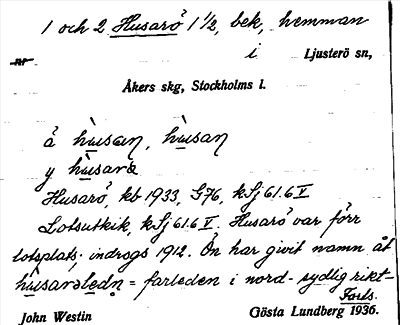 1 och 2 Husarö 1 1/2, bek, hemman
i Ljusterö sn,
Åkers skg, Stockholms l.
å hùsan, hùsan
y hùsarø
Husarö, kb 1933, G76, kSj 61.6 V
Lotsutkik, kSj 61.6 V. Husarö var förr
lotsplats; indrogs 1912. Ön har givit namn åt
husarøledn = farleden i nord-sydlig rikt-
Forts.
John Westin Gösta Lundberg 1936.